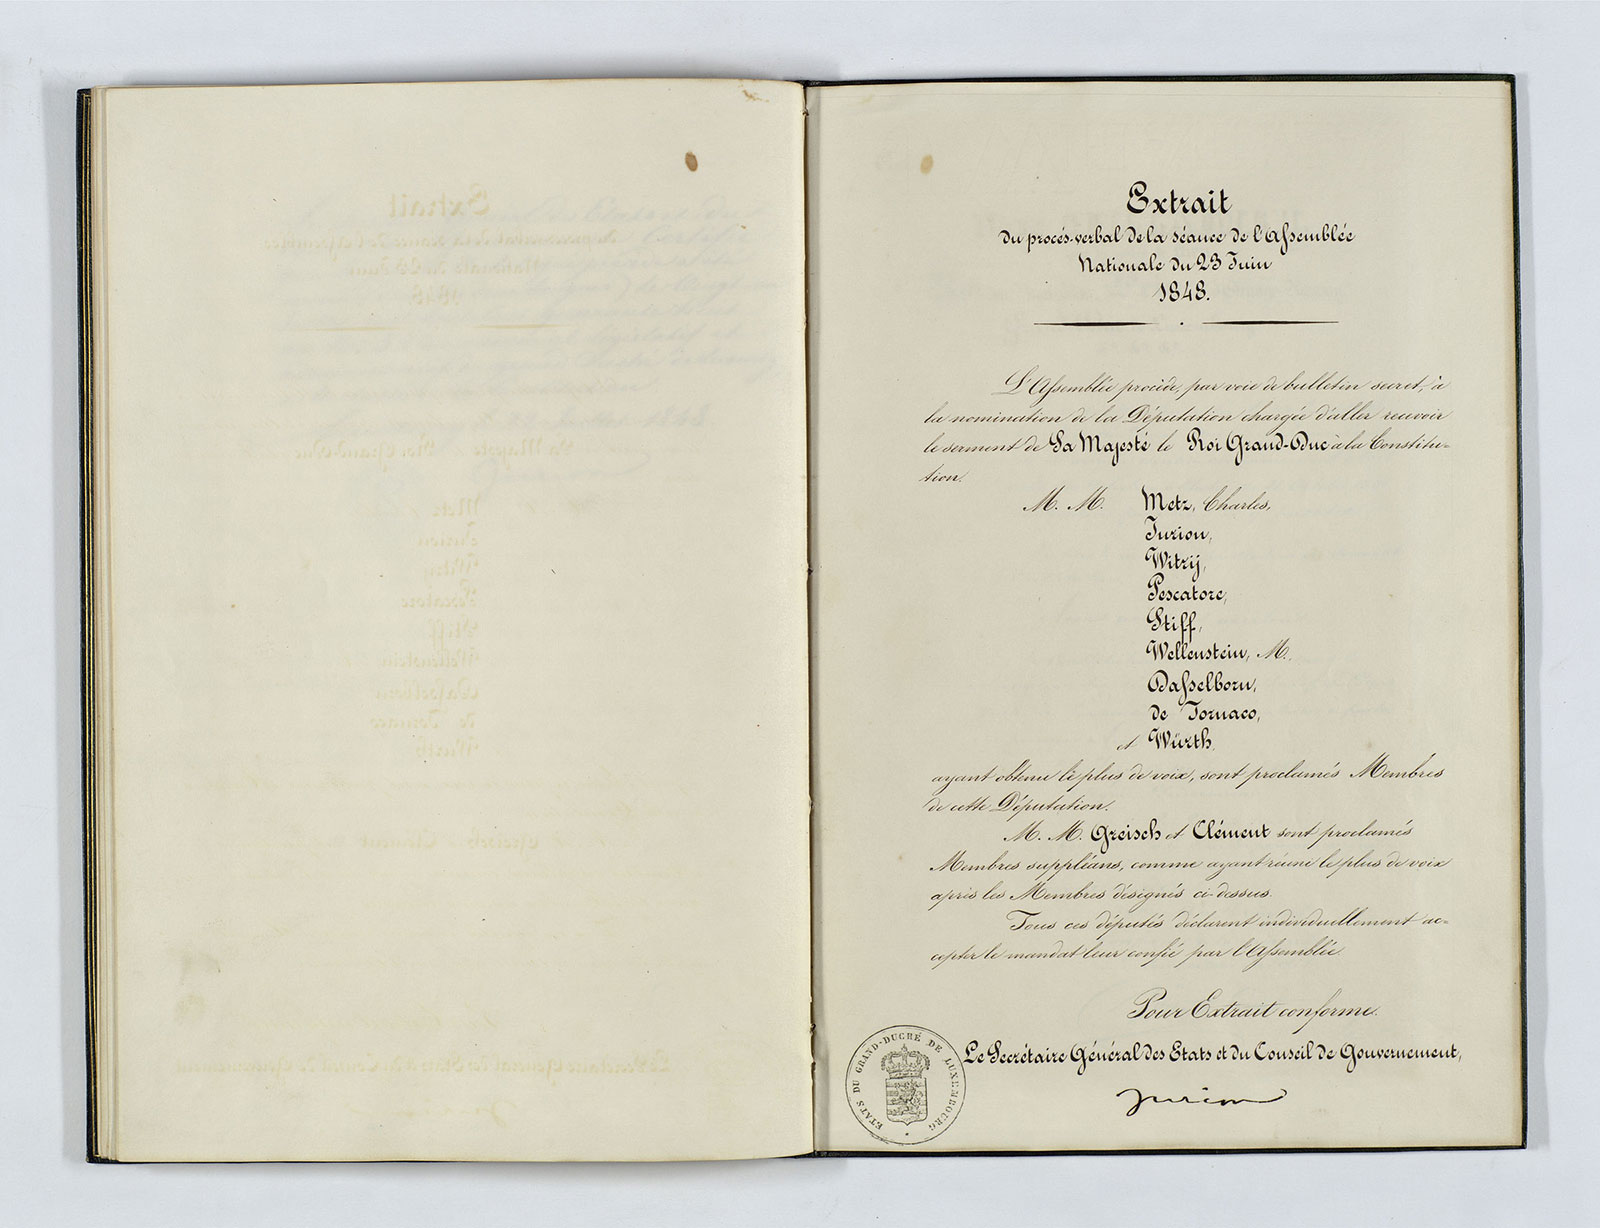 Extrait
du procès-verbal de la séance de l'Assemblée
Nationale du 23 Juin
1848.
L'Assemblée procède, par voie de bulletin secret, à
la nomination de la Députation chargée d'aller recevoir
le serment de Sa Majesté le Roi Grand-Duc à la Constitu-
tion.
M. M. Metz, Charles,
Jurion,
Witry,
Pescatore,
Stiff,
Wellenstein, M.
Dasselborn,
de Tornaco,
et Würth
ayant obtenu le plus de voix, sont proclamés Membres
de cette Députation.
M. M. Greisch et Clément sont proclamés
Membres suppléans, comme ayant réuni le plus de voix
après les Membres désignés ci-dessus.
Tous ces députés déclarent individuellement ac-
cepter le mandat leur confié par l'Assemblée.
Pour Extrait conforme.
Le Secrétaire Général des Etats et du Conseil de Gouvernement,
Jurion
ETATS DU GRAND-DUCHÉ DE LUXEMBOURG